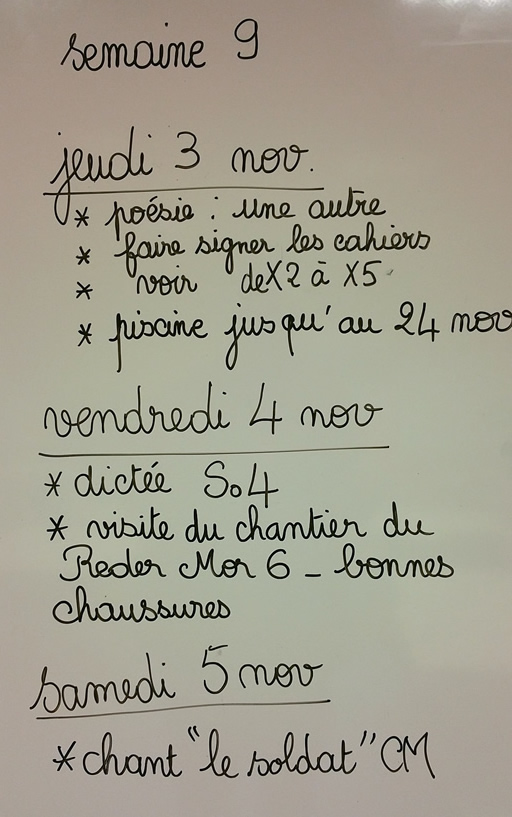 semaine 9
jeudi 3 nov.
* poésie : une autre
* faire signer les cahiers
* voir de X2 à X5
* piscine jusqu'au 24 nov
vendredi 4 nov
* dictée So4
* visite du chantier du
Reder Mor 6 - bonnes
chaussures
samedi 5 nov
* chant "le soldat" CM